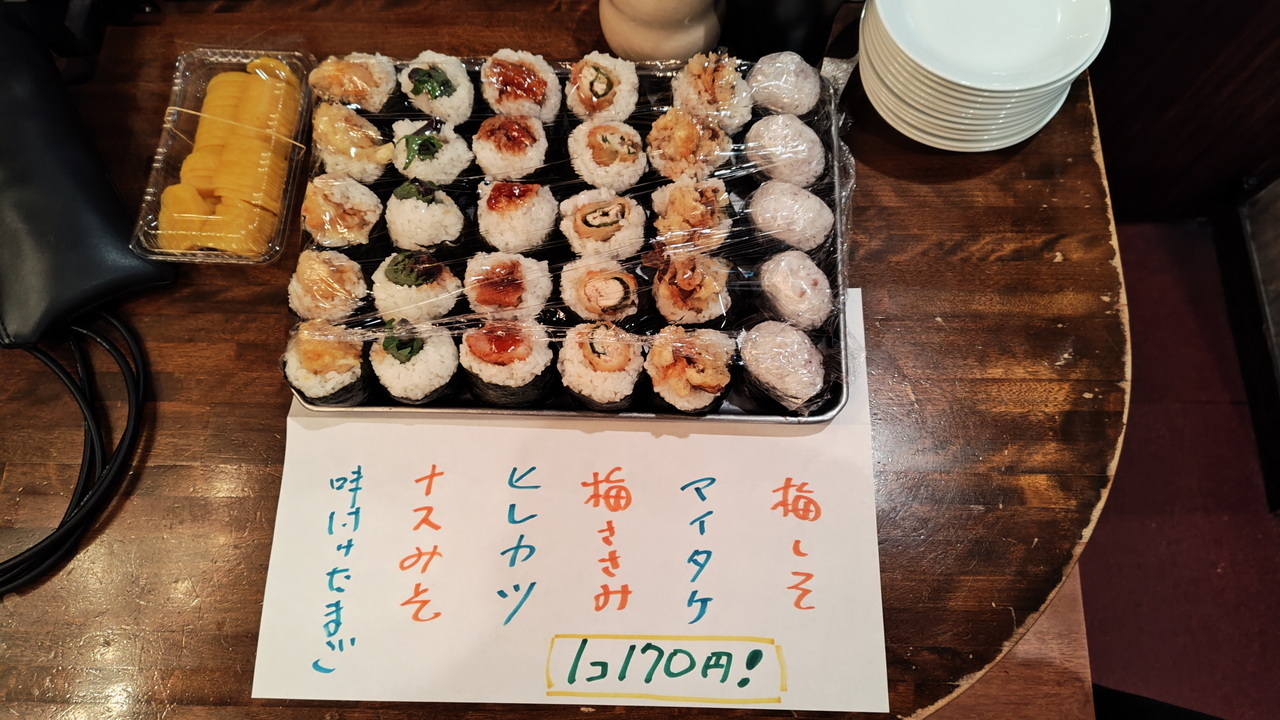 梅しそ
マイタケ
梅ささみ
ヒレカツ
ナスみそ
味付けたまご
1コ170円!